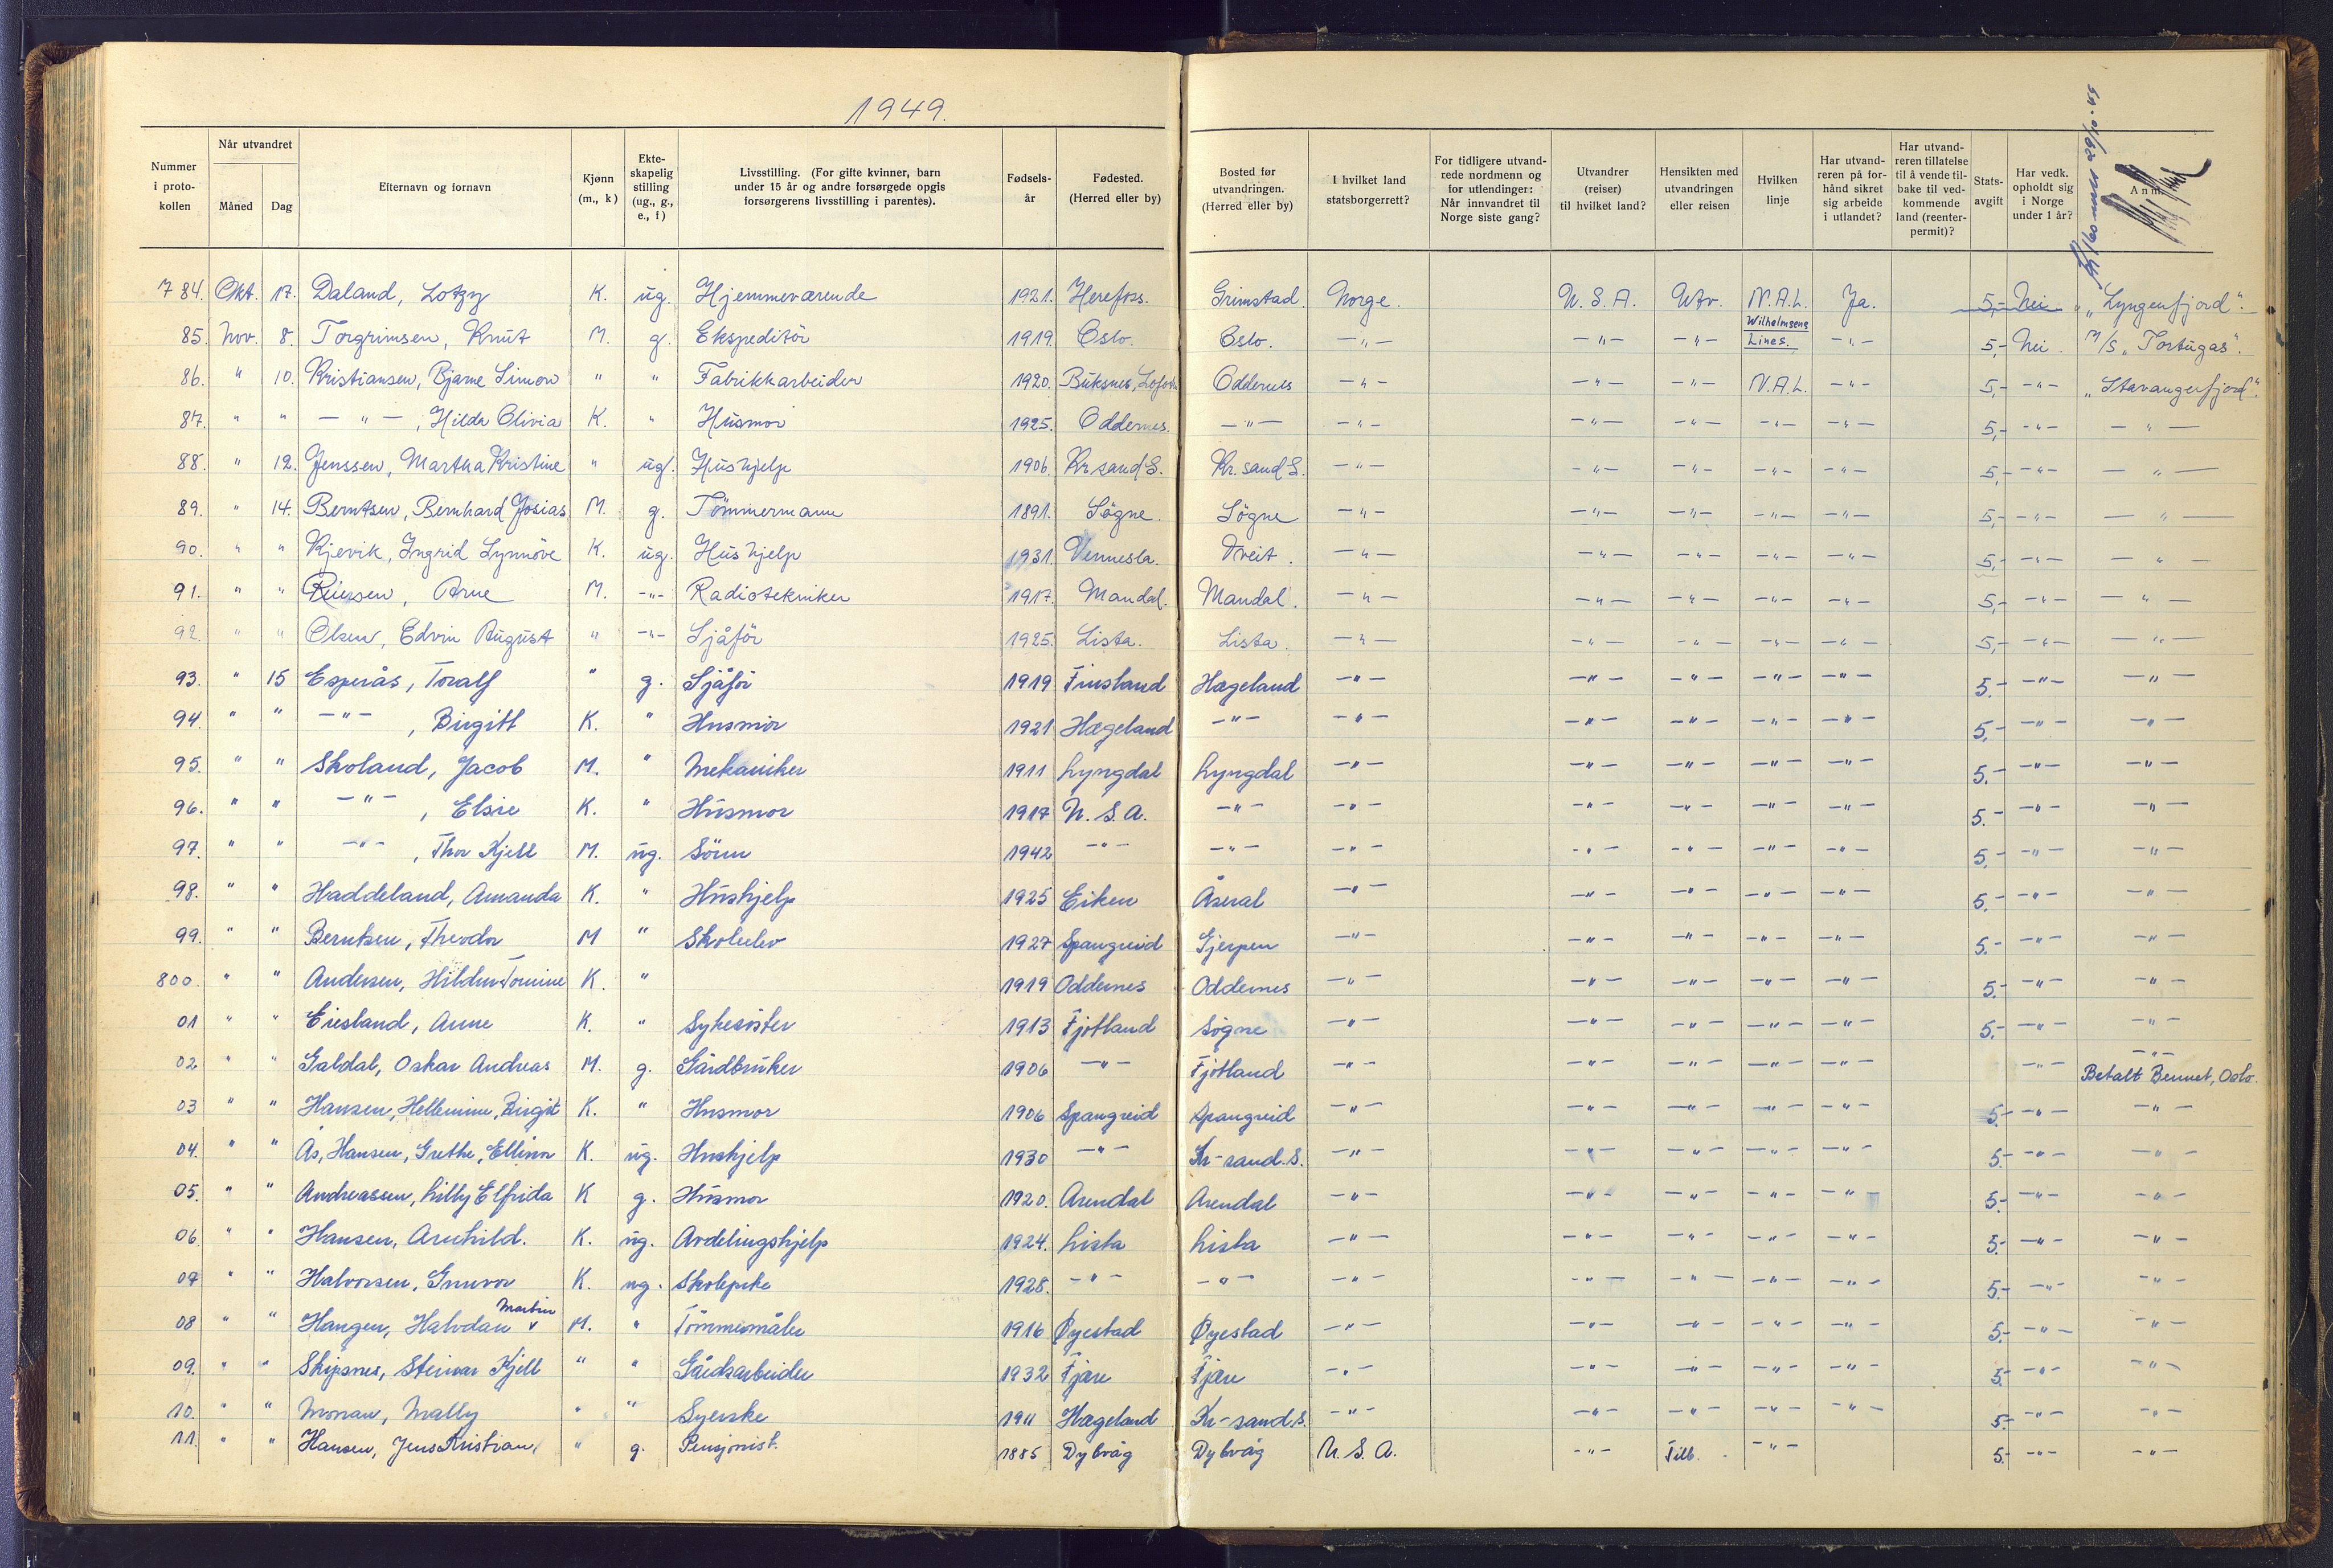 1949.
Nummer i protokollen | Når utvandret Måned Dag | Efternavn og fornavn | Kjønn (m., k) | Ekteskapelig stilling (ug., g., e., f) | Livsstilling. (For gifte kvinner, barn under 15 år og andre forsørgede opgis forsørgerens livsstilling i parentes). | Fødselsår | Fødested. (Herred eller by) | Bosted før utvandringen. (Herred eller by) | I hvilket land statsborgerrett? | For tidligere utvandrede nordmenn og for utlendinger: Når innvandret til Norge siste gang? | Utvandrer (reiser) til hvilket land? | Hensikten med utvandringen eller reisen | Hvilken linje | Har utvandreren på forhånd sikret sig arbeide i utlandet? | Har utvandreren tillatelse til å vende tilbake til vedkommende land (reenterpermit)? | Statsavgift | Har vedk. opholdt sig i Norge under 1 år? | Anm.
784. Okt. 17. Daland, Lotzy K. ug. Hjemmeværende 1921. Herefoss. Grimstad. Norge. U.S.A. Utv. N.A.L. Ja. 5,- Nei „Lyngenfjord".
85. Nov. 8. Torgrimsen, Knut M. g. Ekspeditör 1919. Oslo. Oslo. -"- -"- -"- Wilhelmsens Lines. -"- 5,- Nei. M/S „Tortugas".
86. " 10. Kristiansen, Bjarne Simon " " Fabrikkarbeider 1920. Buksnes, Lofoten Oddernes -"- -"- -"- N.A.L. -"- 5,- -"- „Stavangerfjord".
87. " " -"-, Hilda Olivia K. " Husmor 1925. Oddernes. -"- -"- -"- -"- -"- -"- 5,- -"- -"-
88. " 12. Jenssen, Martha Kristine " ug. Hushjelp 1906. Kr.sand S. Kr.sand S. -"- -"- -"- -"- -"- 5,- -"- -"-
89. " 14. Berntsen, Bernhard Josias M. g. Tömmermann 1891. Sögne. Sögne -"- -"- -"- -"- -"- 5,- -"- -"-
90. " " Kjevik, Ingrid Synnöve K. ug. Hushjelp 1931. Vennesla. Tveit. -"- -"- -"- -"- -"- 5,- -"- -"-
91. " " Reiersen, Arne M. -"- Radiotekniker 1917. Mandal. Mandal. -"- -"- -"- -"- -"- 5,- -"- -"-
92. " " Olsen, Edvin August " -"- Sjåför 1925. Lista. Lista. -"- -"- -"- -"- -"- 5,- -"- -"-
93. " 15 Esperås, Toralf " g. Sjåför 1919 Finsland Hægeland -"- -"- -"- -"- -"- 5.- -"- -"-
94. " " -"-, Birgitt K. " Husmor 1921 Hægeland -"- -"- -"- -"- -"- -"- 5.- -"- -"-
95. " " Skoland, Jacob M. " Mekaniker 1911 Lyngdal Lyngdal -"- -"- -"- -"- -"- 5.- -"- -"-
96. " " -"-, Elsie K. " Husmor 1917 U.S.A. -"- -"- -"- -"- -"- -"- 5.- -"- -"-
97. " " -"-, Thor Kjell M. ug. Sönn 1942 -"- -"- -"- -"- -"- -"- -"- 5.- -"- -"-
98. " " Haddeland, Amanda K. " Hushjelp 1925 Eiken Åseral -"- -"- -"- -"- -"- 5.- -"- -"-
99. " " Berntsen, Theodor M " Skoleelev 1927 Spangreid Gjerpen -"- -"- -"- -"- -"- 5.- -"- -"-
800. " " Andersen, Hildur Tomine K. " 1919 Oddernes Oddernes -"- -"- -"- -"- -"- 5.- -"- -"-
01 " " Eiesland, Anne K. " Sykesöster 1913 Fjotland Sögne -"- -"- -"- -"- -"- 5.- -"- -"-
02 " " Galdal, Oskar Andreas M. g. Gårdbruker 1906 -"- Fjotland -"- -"- -"- -"- -"- -"- -"- Betalt Bennet, Oslo.
03 " " Hansen, Hellemine, Birgit K. " Husmor 1906 Spangreid Spangreid -"- -"- -"- -"- -"- 5.- -"- -"-
04. " " Ås, Hansen, Grethe, Ellinor K. ug. Hushjelp 1930 -"- Kr-sand.S. -"- -"- -"- -"- -"- 5.- -"- -"-
05. " " Andreassen, Lilly Elfrida K g. Husmor 1920. Arendal Arendal -"- -"- -"- -"- -"- 5.- -"- -"-
06. " " Hansen, Arnhild. K. ug. Avdelingshjelp 1924. Lista Lista -"- -"- -"- -"- -"- 5.- -"- -"-
07 " " Halvorsen, Gunvor K. ug. Skolepike 1928. -"- -"- -"- -"- -"- -"- -"- 5.- -"- -"-
08 " " Haugen, Halvdan Martin M. " Tömmermåler 1916 Øyestad Øyestad -"- -"- -"- -"- -"- 5.- -"- -"-
09. " " Skipsnes, Steinar Kjell " " Gårdsarbeider 1932 Fjære Fjære -"- -"- -"- -"- -"- 5.- -"- -"-
10. " " Monan, Mally " " Syerske 1911 Hægeland Kr-sand.S. -"- -"- -"- -"- -"- 5.- -"- -"-
11. " " Hansen, Jens Kristian, " g. Pensjonist. 1885 Dybvåg Dybvåg U.S.A. -"- Tilb. -"- 5.- -"- -"-